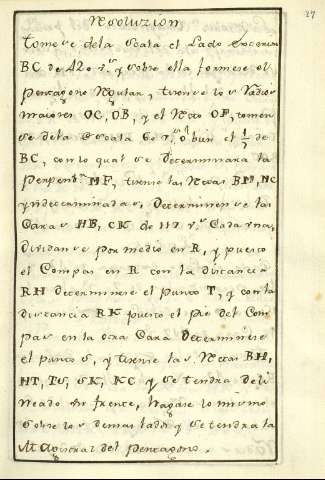 27
Resoluzion
tomese de la Scala el Lado exterior
BC de 420 r.s y sobre ella formese el
Pentagono Regular, tirense los Radios
maiores OC, OB, y el Recto OF, tomen
se de la Escala 60 r.s ó bien el 1/7 de
BC, con lo qual se Determinara la
Perpend.r MF, tirense las Rectas BM, MC
yndeterminadas, Determinense las
Caras HB, CK de 117 r.s Cada una,
dividanse por medio en R, y puesto
el Compas en R con la distancia
RH determinese el punto T, y con la
distancia RK puesto el pie del Com
pas en la otra Cara Determinese
el punto S, y tirense las Rectas BH,
HT, TS, SK, KC y se tendra deli
neado el frente, hagase lo mismo
sobre los demas lados y se tendra la
Magistral del Pentagono.